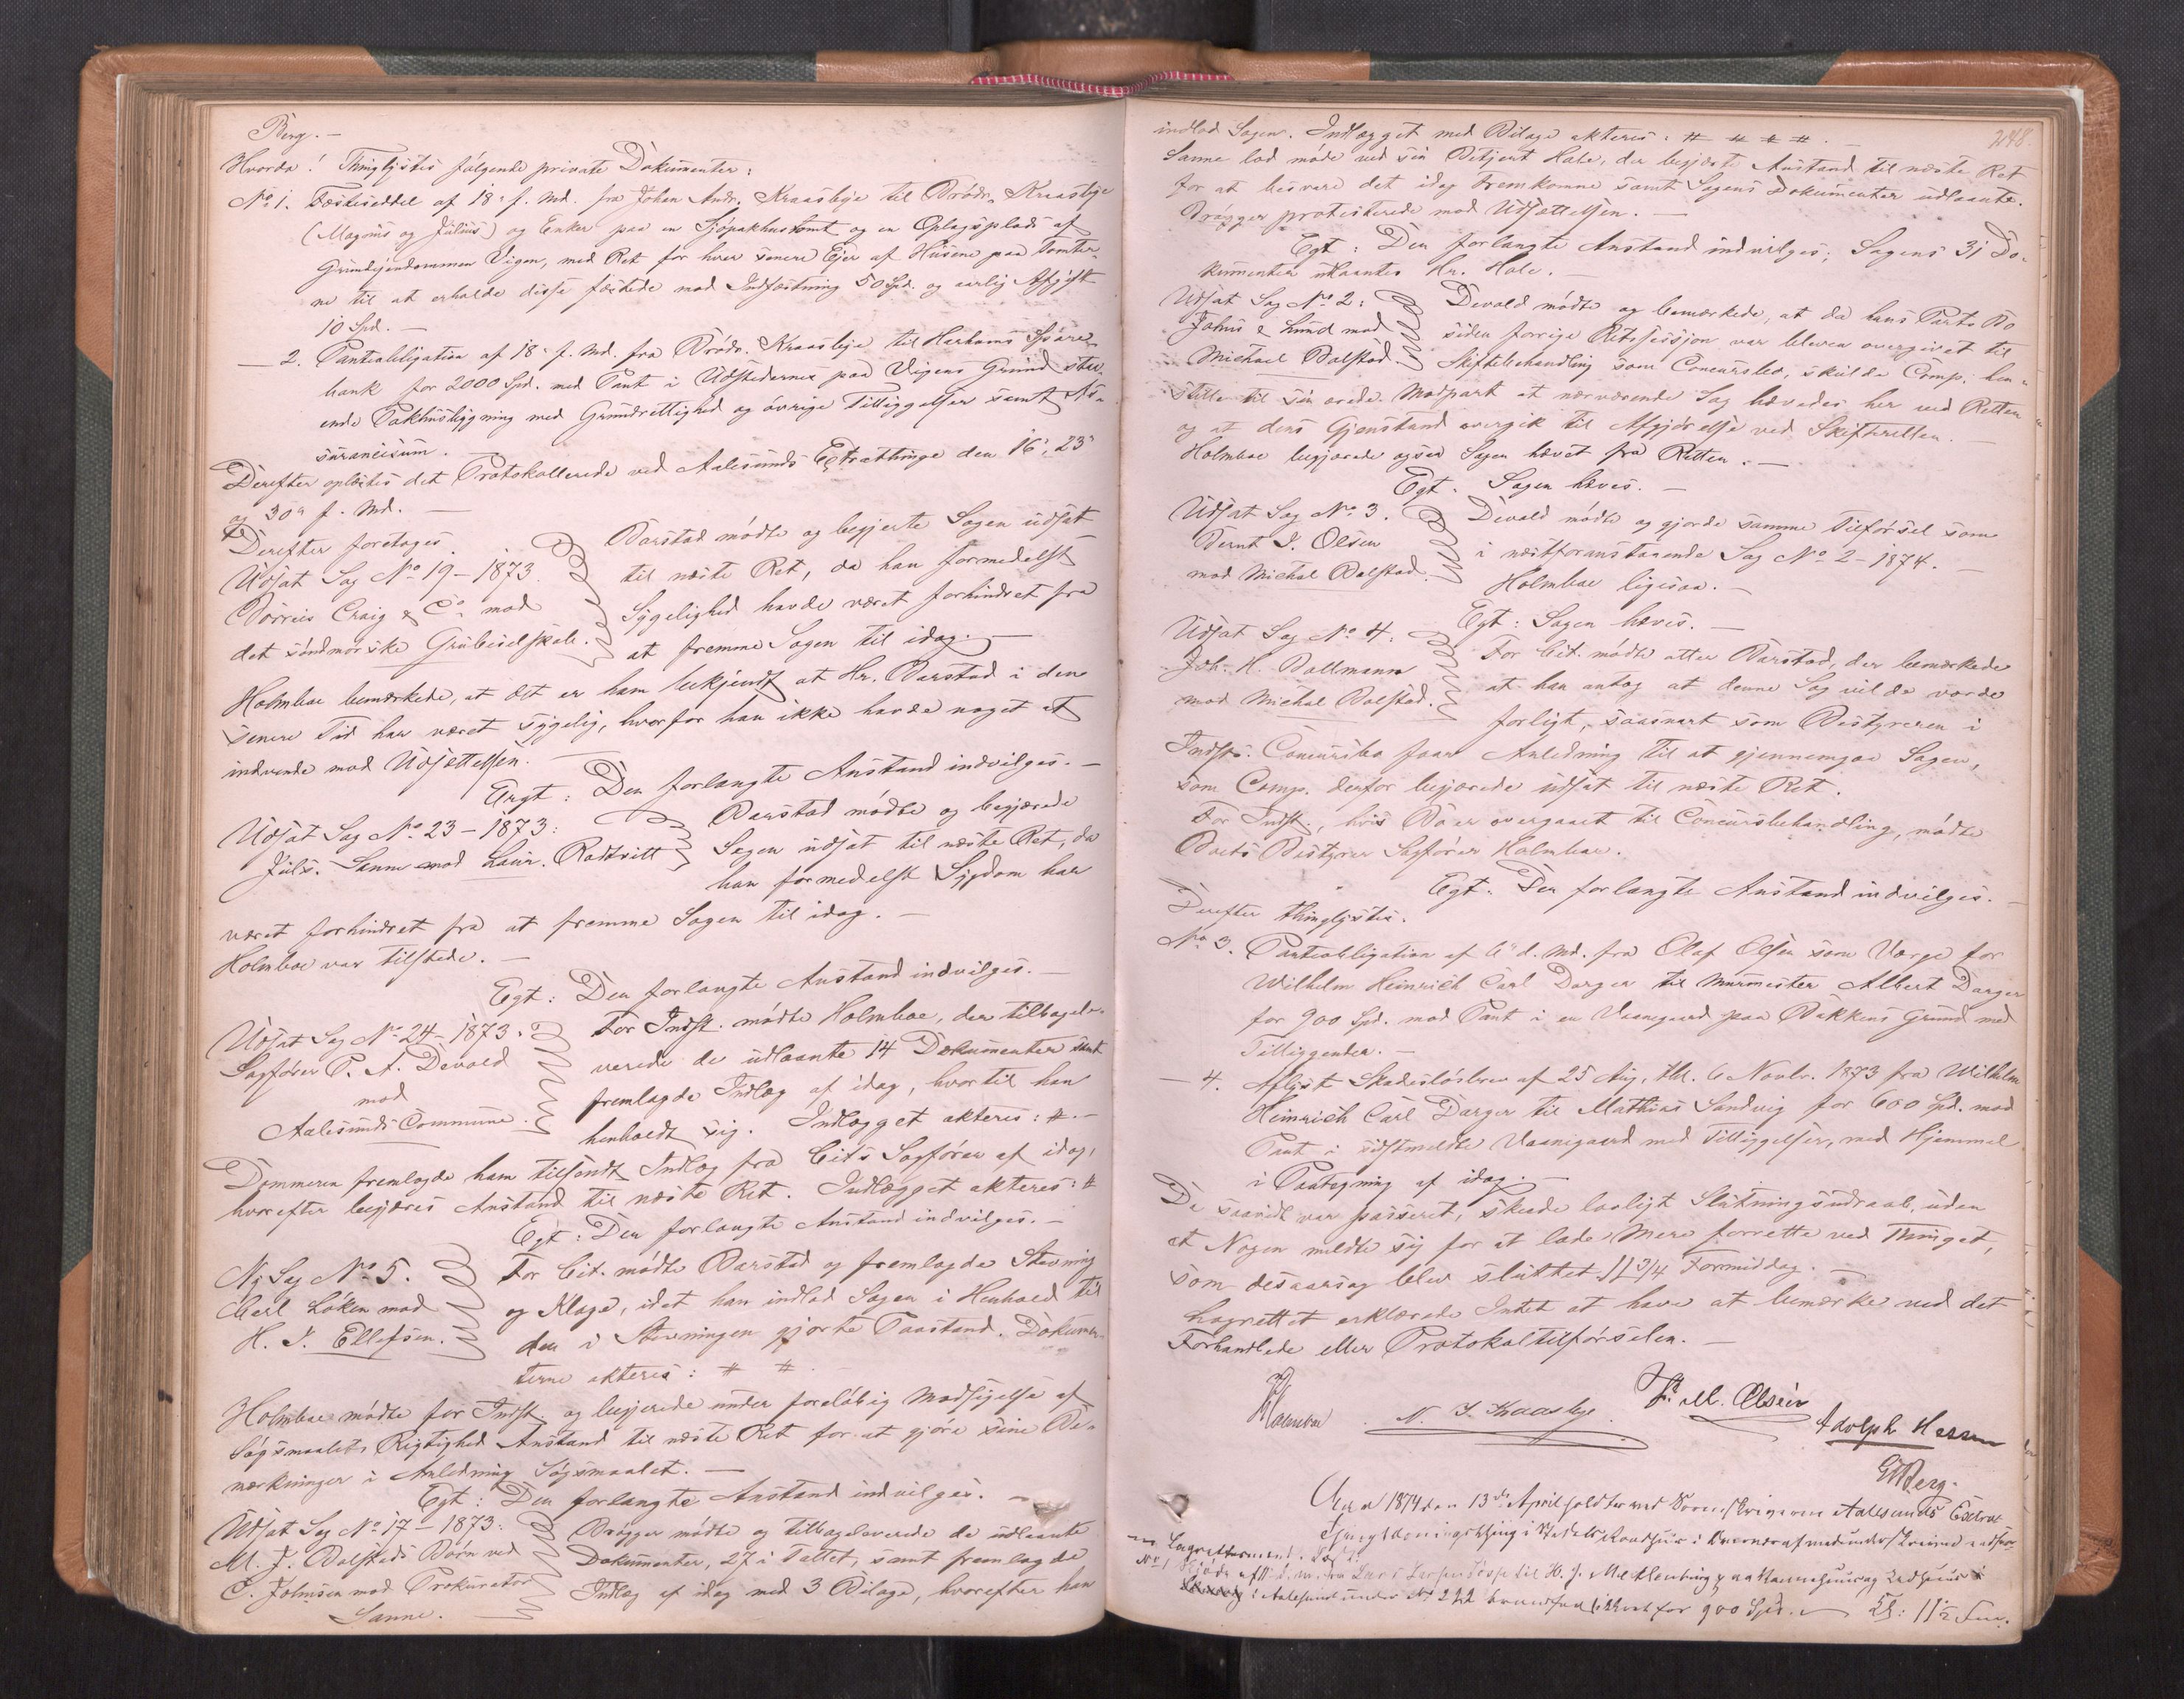 Berg. —
Hvorda! Thinglystes følgende private Dokumenter:
No 1. Fæsteseddel af 18. f. Md. fra Johan Andr. Kraasbye til Brødr. Kraasbye
(Magnus og Julius) og Enker paa en Sjøpakhustomt og en Oplagsplads af
Grundejendommen Vigen, med Ret for hver senere Ejer af Husene paa Tomter-
ne til at erholde disse fæstede mod Indfæstning 50 Spd. og aarlig Afgift
10 Spd. —
— 2. Pantobligation af 18. f. Md. fra Brødr. Kraasbye til Harhams Spare-
bank for 2000 Spd. med Pant i Udstedernes paa Vigens Grund staa-
ende Pakhusbygning med Grundrettighed og øvrige Tilliggelser samt As-
surancesum. —
Derefter oplæstes det Protokollerede ved Aalesunds Extrathinge den 16', 23'
og 30' f. Md. —
Derefter foretoges
Udsat Sag No 19 – 1873.
Børreis Craig & Co mod
det søndmørske Grubeselskab.
Barstad mødte og begjerte Sagen udsat
til næste Ret, da han formedelst
Sygelighed havde været forhindret fra
at fremme Sagen til idag. —
Holmboe bemærkede, at det er ham bekjendt at Hr. Barstad i den
senere Tid har været sygelig, hvorfor han ikke havde noget at
indvende mod Udsættelsen. —
Eragt: Den forlangte Anstand indvilges. —
Udsat Sag No 23 – 1873:
Juls. Sanne mod Laur. Rødtvitt
Barstad mødte og begjærede
Sagen udsat til næste Ret, da
han formedelst Sygdom har
været forhindret fra at fremme Sagen til idag. —
Holmboe var tilstede. —
Egt: Den forlangte Anstand indvilges. —
Udsat Sag No 24 – 1873:
Sagfører P. A. Devold
mod
Aalesunds Commune.
For Indst. mødte Holmboe, der tilbagele-
verede de udlaante 14 Dokumenter samt
fremlagde Indlæg af idag, hvortil han
henholdt sig. Indlægget akteres: #. —
Dommeren fremlagde ham tilsendt Indlæg fra Cits Sagfører af idag,
hvorefter begjæres Anstand til næste Ret. Indlægget akteres: #
Egt: Den forlangte Anstand indvilges. —
Ny Sag No 5.
Carl Løken mod
H. J. Ellefsen.
For Cit. mødte Barstad og fremlagde Stevning
og Klage, idet han indlod Sagen i Henhold til
den i Stevningen gjorte Paastand. Dokumen-
terne akteres: # #.
Holmboe mødte for Indst. og begjerede under foreløbig Modsigelse af
Søgsmaalets Rigtighed Anstand til næste Ret for at gjøre sine Be-
mærkninger i Anledning Søgsmaalet. —
Egt: Den forlangte Anstand indvilges. —
Udsat Sag No 17 – 1873:
M. J. Dalstads Børn ved
C. Johnsen mod Prokurator
Sanne.
Brøgger mødte og tilbageleverede de udlaante
Dokumenter, 27 i Tallet, samt fremlagde
Indlæg af idag med 3 Bilage, hvorefter han
248.
indlod Sagen. Indlægget med Bilage akteres: # # # #. —
Sanne lod møde ved sin Betjent Hole, der begjærte Anstand til næste Ret
for at besvare det idag fremkomne samt Sagens Dokumenter udlaante.
Brøgger protesterede mod Udsættelsen. —
Egt: Den forlangte Anstand indvilges; Sagens 31 Do-
kumenter udlaantes Hr. Hole. —
Udsat Sag No 2:
Jahns & Lund mod
Michael Dalstad.
Devold mødte og bemærkede, at da hans Parts Bo
siden forrige Retssession var bleven overgivet til
Skiftebehandling som Concursbo, skulde Comp. hen-
stille til sin ærede Modpart at nærværende Sag hævedes her ved Retten
og at dens Gjenstand overgik til Afgjørelse ved Skifteretten. —
Holmboe begjærede ogsaa Sagen hævet fra Retten. —
Egt. Sagen hæves. —
Udsat Sag No 3.
Bernt I. Olsen
mod Michal Dalstad.
Devold mødte og gjorde samme Tilførsel som
i næstforanstaaende Sag No 2 – 1874. —
Holmboe ligesaa. —
Egt: Sagen hæves. —
Udsat Sag No 4.
Joh. H. Ballmann
mod Michal Dalstad.
For Cit. mødte atter Barstad, der bemærkede
at han antog at denne Sag vilde vorde
forligt, saasnart som Bestyreren i
Indsts. Concursbo faar Anledning til at gjennemgaa Sagen,
som Comp. derfor begjærede udsat til næste Ret.
For Indst., hvis Bo er overgaaet til Concursbehandling, mødte
Boets Bestyrer Sagfører Holmboe.
Egt. Den forlangte Anstand indvilges. —
Derefter thinglystes:
No 3. Pantobligation af 6' d. Md. fra Olaf Olsen som Værge for
Wilhelm Heinrich Carl Darger til Murmester Albert Darger
for 900 Spd. mod Pant i en Vaanegaard paa Bakkens Grund med
Tilliggender. —
— 4. Aflyst Skadesløsbrev af 25 Aug, thl. 6 Novbr. 1873 fra Wilhelm
Heinrich Carl Darger til Mathias Sandvig for 600 Spd. mod
Pant i sidstmeldte Vaanegaard med Tilliggelser, med Hjemmel
i Paategning af idag. —
Da saavidt var passeret, skede lovligt Slutningsudraab, uden
at Nogen meldte sig for at lade Mere forrette ved Thinget,
som desaarsag blev sluttet 11 3/4 Formiddag. —
Lagrettet erklærede Intet at have at bemærke ved det
Forhandlede eller Protokoltilførselen. —
N. J. Kraasbye. Fr. M. Olsen
Adolph Hessen
Berg.
Aar 1874 den 13de April holdtes ved Sorenskriveren Aalesunds Extrat
i Byens Raadhuus i Overvær af medunderskrevne
Lagrettemænd.
No 1 Skjøde H. J.
i Aalesund under No 222 for 900 Spd. — Kl: 11½ Fm.